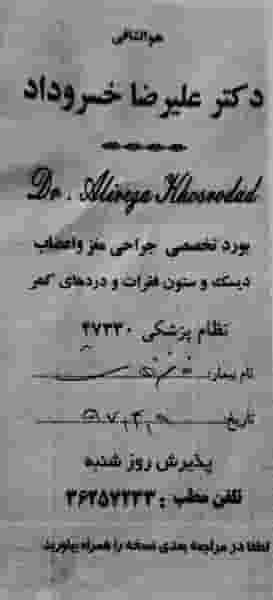 هوالشافی
دکتر علیرضا خسروداد
Dr. Alireza Khosrodad
بورد تخصصی جراحی مغز واعصاب
دیسک و ستون فقرات و دردهای کمر
نظام پزشکی ۴۷۳۳۰
نام بیمار:
تاریخ
پذیرش روز شنبه
تلفن مطب : ۳۶۲۵۷۲۳۳
لطفا در مراجعه بعدی نسخه را همراه بیاورید